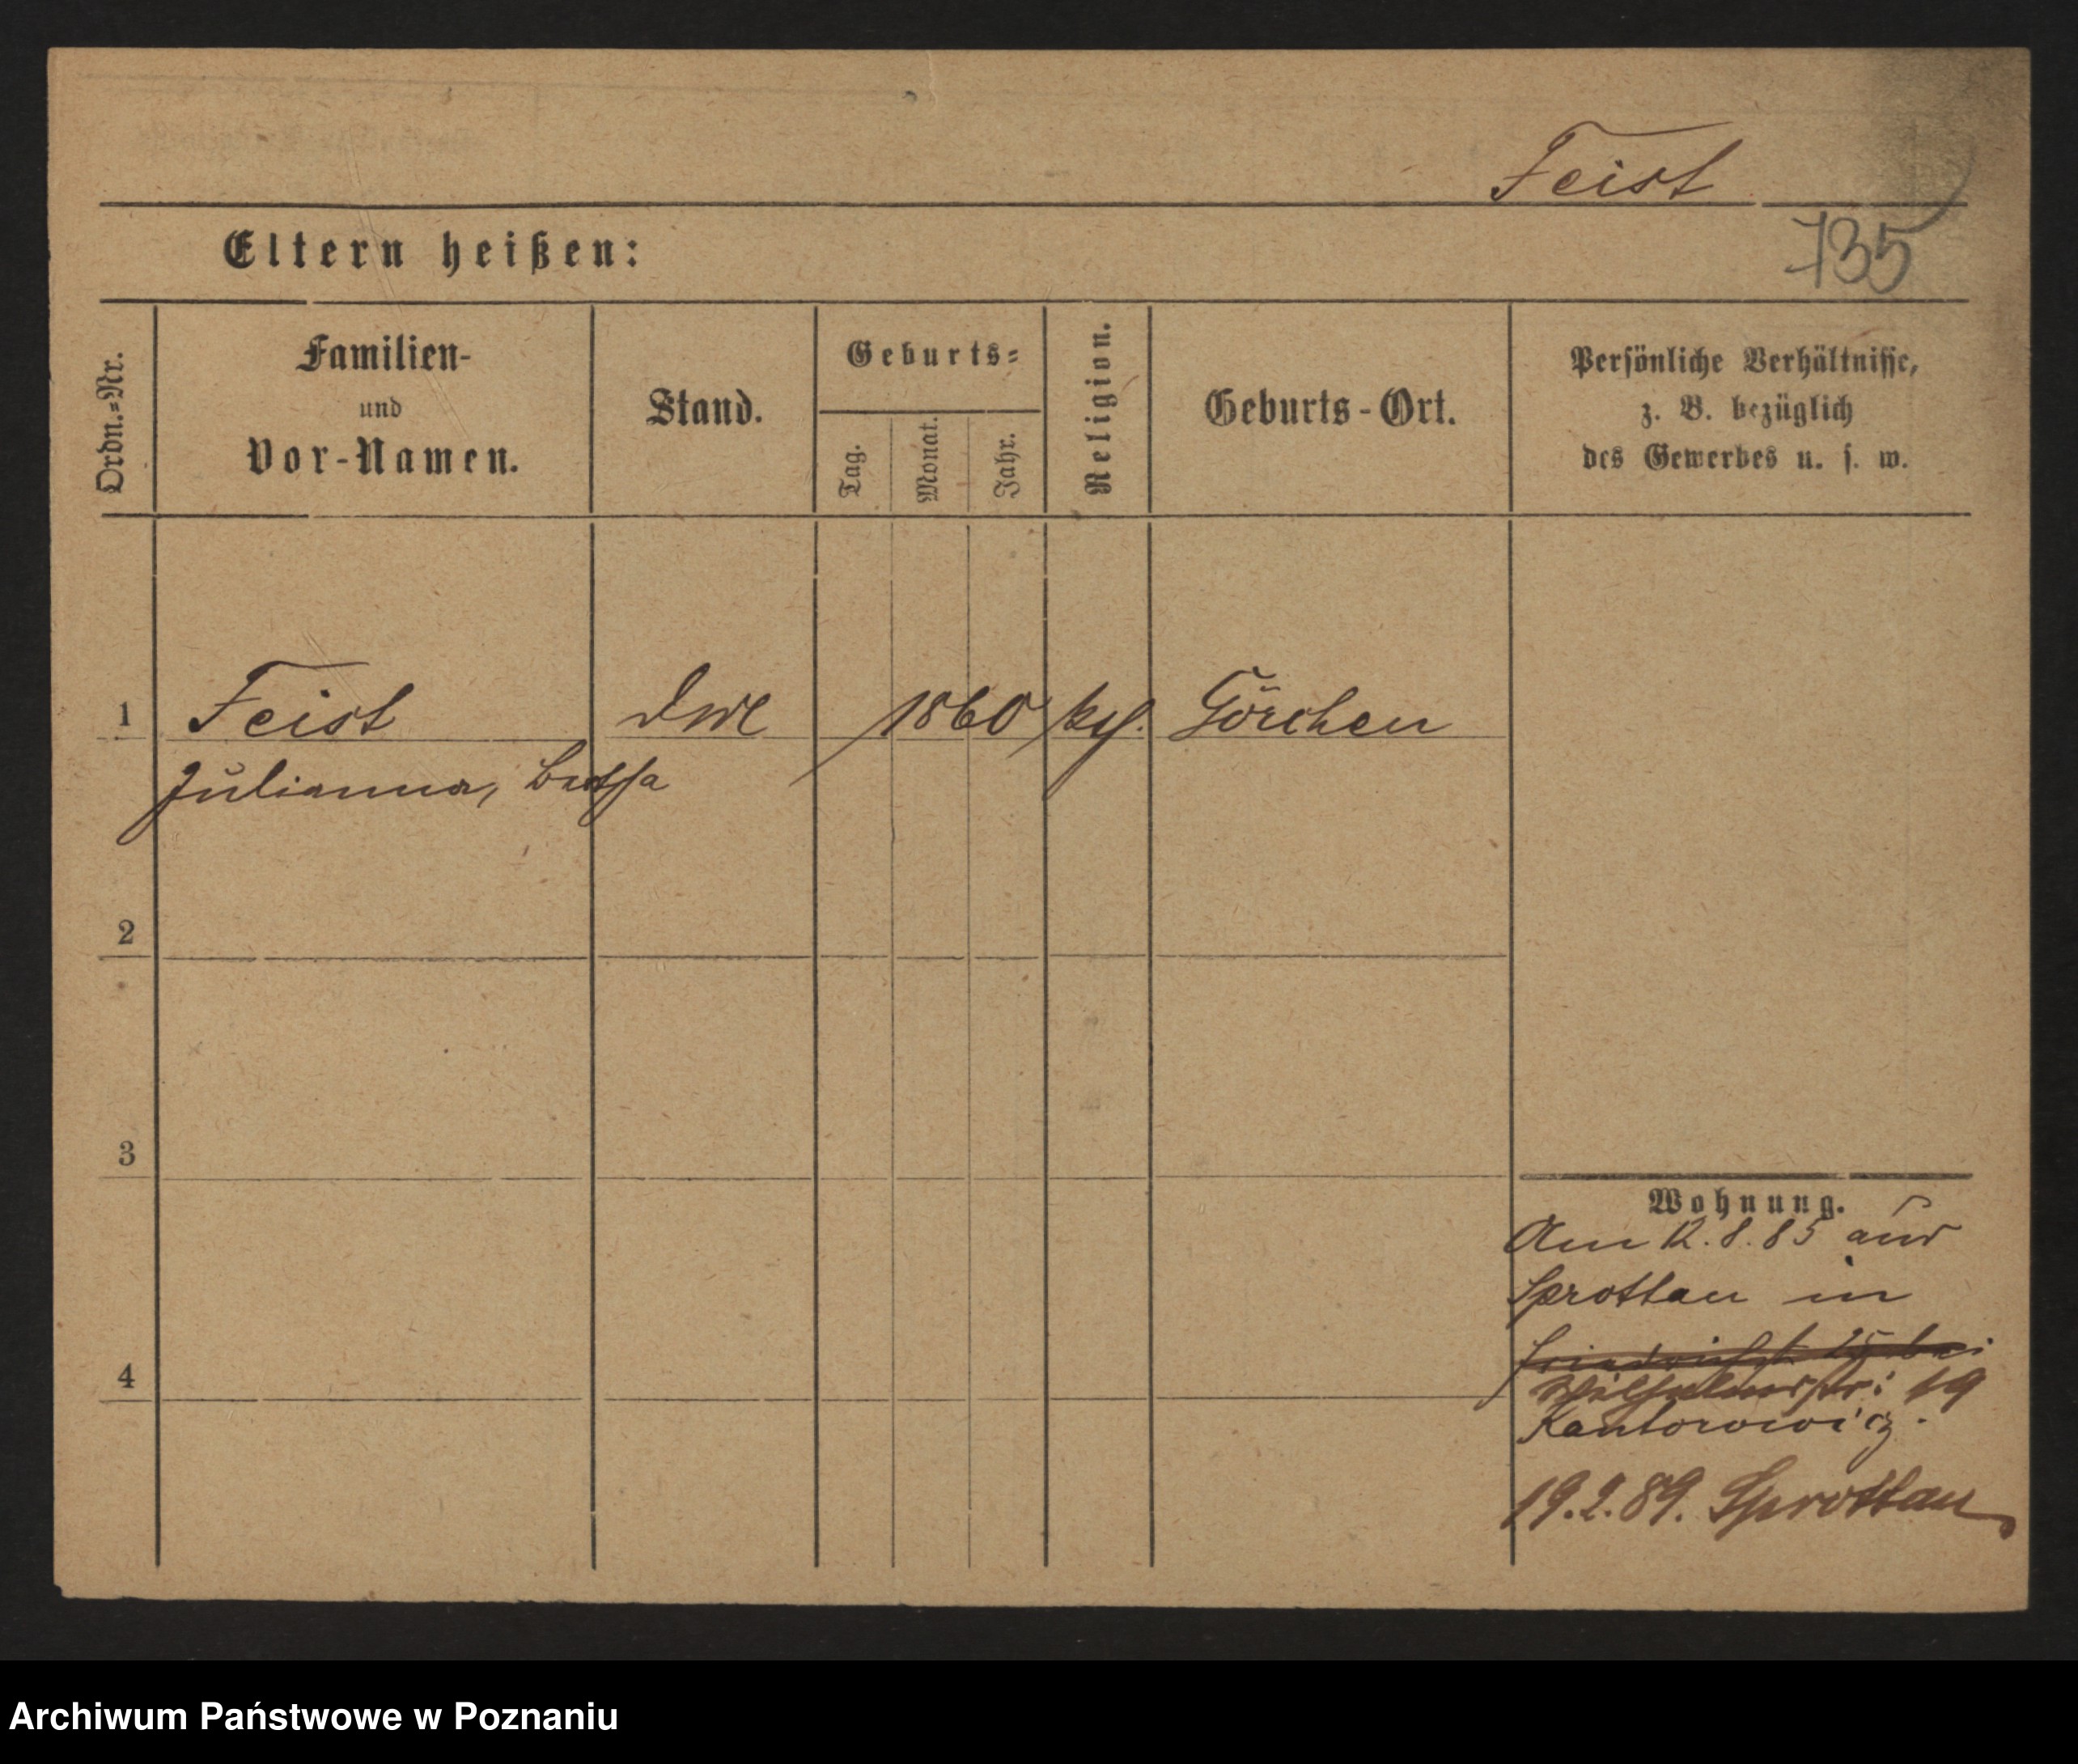 Feist
735
Eltern heißen:
Ordn.=Nr.
Familien-
und
Vor-Namen.
Stand.
Geburts=
Tag.
Monat.
Jahr.
Religion.
Geburts-Ort.
Persönliche Verhältnisse,
z. B. bezüglich
des Gewerbes u. s. w.
1 Feist 1860 Görchen
Julianna, Bertha
2
3
4
Wohnung.
Am 12.8.85 aus
Sprottau in
Friedrichst. bei
Wilhelmstr: 19
Kantorowicz.
19.2.89. Sprottau
Archiwum Państwowe w Poznaniu